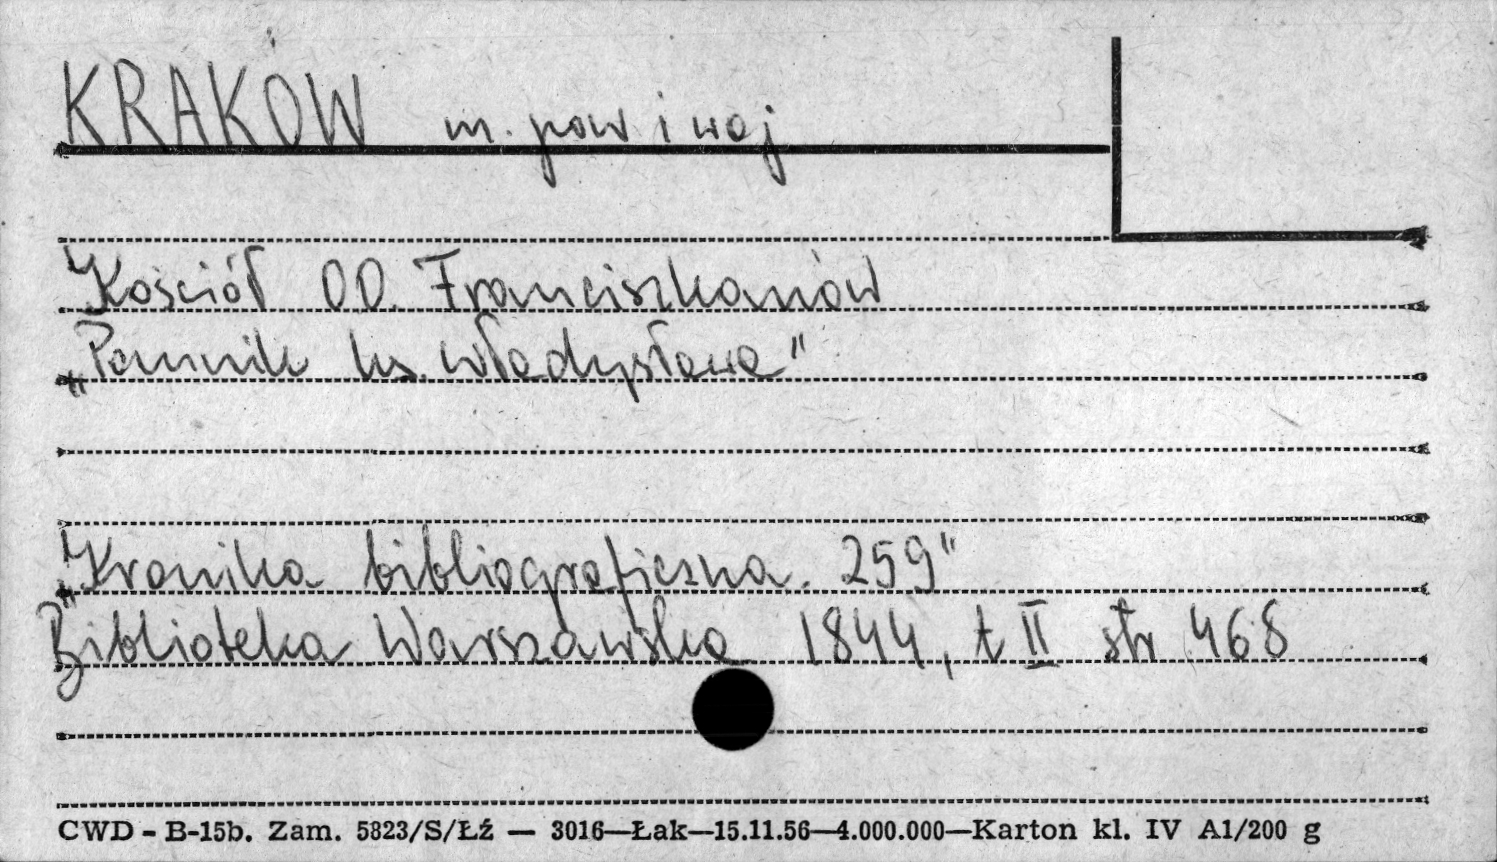 KRAKÓW m. pow i woj
Kościół OO. Franciszkanów
„Pomnik ks. Władysława"
„Kronika bibliograficzna. 259"
Biblioteka Warszawska 1844, t II str 468
CWD - B-15b. Zam. 5823/S/Łź — 3016—Łak—15.11.56—4.000.000—Karton kl. IV A1/200 g